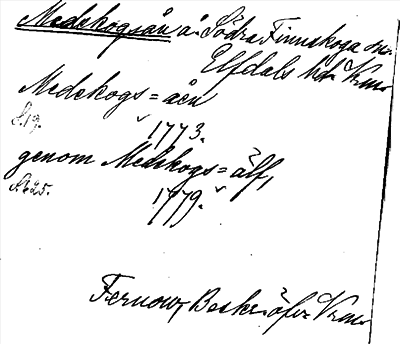 Medskogsån å. Södra Finnskoga sn.
Elfdals hd. Vrm.
Medskogs=åen
S.19. 1773.
genom Medskogs=älf,
S.625. 1779.
Fernow, Beskr. öfver Vrm.